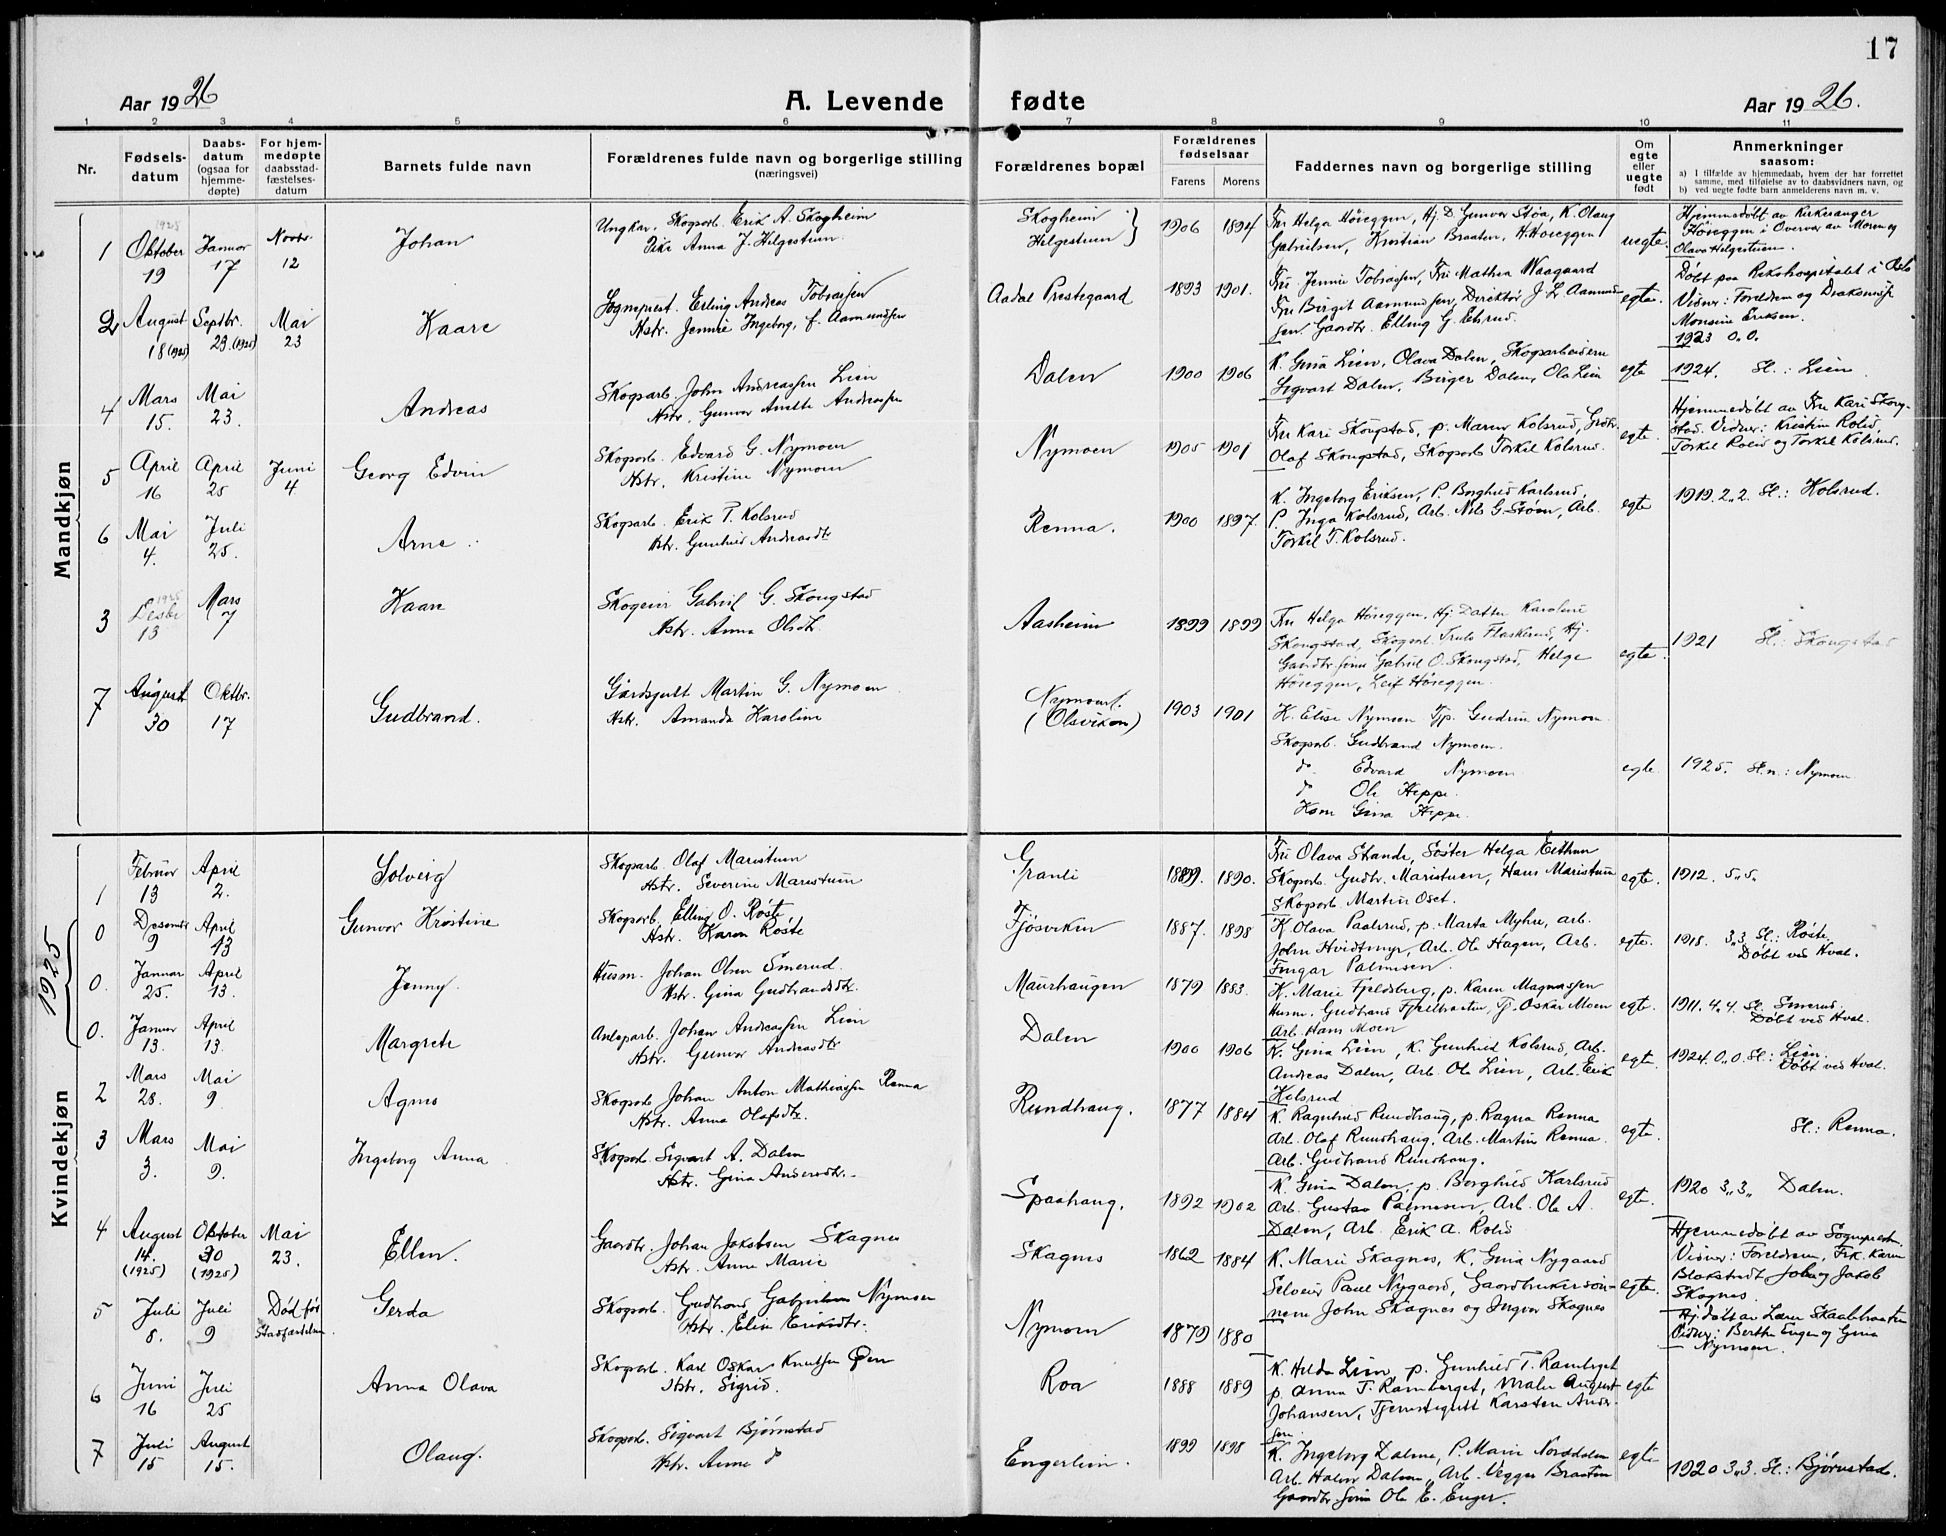 17
Aar 1926
A. Levende fødte
Aar 1926.
1 2 3 4 5 6 7 8 9 10 11
Nr.
Fødsels-datum
Daabs-datum (ogsaa for hjemme-døpte)
For hjem-medøpte daabsstad-fæstelses-datum
Barnets fulde navn
Forældrenes fulde navn og borgerlige stilling (næringsvei)
Forældrenes bopæl
Forældrenes fødselsaar
Farens
Morens
Faddernes navn og borgerlige stilling
Om egte eller uegte født
Anmerkninger saasom:
a) I tilfælde av hjemmedaab, hvem der har forrettet samme, med tilføielse av to daabsvidners navn, og
b) ved uegte fødte barn anmelderens navn m. v.
Mandkjøn
1
1925 Oktober 19
Januar 17
Novbr. 12
Johan
Ungkar, Skogsarb. Erik A. Skogheim
Pike Anna J. Helgestuen
Skogheim
Helgestuen
1906 1894
Fru Helga Høseggen, Hj. D. Gunvor Støa, K. Olaug
Gabrielsen, Kristian Braaten, H. Høseggen
uegte.
Hjemmedøbt av Kirkesanger
Høseggen i Overvær av Moren og
Olava Helgestuen.
2
August 18 (1925)
Septbr. 29. (1925)
Mai 23
Kaare
Sogneprest. Erling Andreas Tobiassen
Hstr. Jennie Ingeborg, f. Aamundsen
Aadal Prestegaard
1893 1901.
Fru Jennie Tobiassen, Fru Mathea Waagaard
Fru Birgit Aamundsen, Direktør J. Lr Aamund-
sen. Gaardbr. Elling G. Elsrud.
egte.
Døbt paa Rikshospitalet i Oslo
Vidner: Foreldrene og Diakonisse
Monsine Eriksen.
1923 0.0.
4
Mars 15.
Mai 23.
Andreas
Skogsarb. John Andreassen Lien
Hstr. Gunvor Anette Andreassen
Dalen
1900 1906
K. Gina Lien, Olava Dalen, Skogsarbeidere
Sigvart Dalen, Birger Dalen, Ola Lien
egte
1924. Sl.: Lien
5
April 16
April 25
Juni 4
Georg Edvin
Skogsarb. Edvard G. Nymoen
Hstr. Kristine Nymoen
Nymoen
1905 1901
Fru Kari Skougstad, p. Maren Kolsrud, Grdbr.
Olaf Skougstad, Skogsarb. Torkel Kolsrud.
egte.
Hjemmedøbt av Fru Kari Skoug-
stad. Vidner: Kristin Rolid,
Torkel Rolid og Torkel Kolsrud.
6
Mai 4.
Juli 25.
Arne
Skogsarb. Erik T. Kolsrud
Hstr. Gunhild Andreasdtr.
Renna.
1900 1897.
K. Ingeborg Eriksen, P. Borghild Karlsrud,
P. Inga Kolsrud, Arb. Nils G. Støen, Arb.
Torkil T. Kolsrud.
egte
1919. 2„2. Sl.: Kolsrud.
3
1925 Desbr 13
Mars 7
Kaare
Skogeier Gabriel G. Skougstad
Hstr. Anna Olsdtr.
Aasheim
1899 1899
Fru Helga Høseggen, Hj. Datter Karoline
Skougstad, Skogsarb. Truls Flaskerud, Hj.
Gaardbr.sønn Gabriel O. Skougstad, Helge
Høseggen, Leif Høseggen.
egte.
1921 Sl.: Skougstad
7
August 30
Oktbr. 17
Gudbrand.
Martin G. Nymoen
Hstr. Amanda Karoline
(Olsvikon)
1903 1901
K. Elise Nymoen Tjp. Gudrun Nymoen
Skogsarb. Gudbrand Nymoen.
do. Edvard Nymoen
do Ole Heppe.
Kone Gina Heppe.
egte.
1925. Sl.n.: Nymoen
Kvindekjøn
1925
1
Februar 13
April 2.
Solveig
Skogsarb. Olaf Maristuen
Hstr. Severine Maristuen
Granli
1889. 1890.
Fru Olava Strande, Søster Helga Eithun
Skogsarb. Gudbr. Maristuen, Hans Maristuen
Skogsarb. Martin Oset.
egte.
1912. 5„5„
0
Desember 9
April 13
Gunvor Kristine
Skogsarb. Elling O. Røste
Hstr. Karen Røste
Tjøsviken
1887. 1898
K. Olava Paalsrud, p. Marta Myhre, arb.
John Hvidtmyr, Arb. Ole Hagen, Arb.
Fingar Palmesen.
egte.
1918. 3„3 Sl.: Røste
Døbt ved Hval.
0.
Januar 25.
April 13.
Jenny.
Husm. Johan Olsen Smerud.
Hstr. Gina Gudbrandsdtr.
Maurhaugen
1879 1883.
K. Marie Fjeldberg, p. Karen Magnussen
Husm. Gudbrand Fjellbraaten, Tj. Oskar Moen
Arb. Hans Moen
egte.
1911. 4„4. Sl. Smerud.
Døbt ved Hval.
0.
Januar 13.
April 13.
Margrete
Anlægsarb. Johan Andreassen Lien
Hstr. Gunvor Andreasdtr.
Dalen
1900 1906
K. Gina Lien, K. Gunhild Kolsrud, Arb.
Andreas Dalen, Arb. Ole Lien, Arb. Erik
Kolsrud
egte.
1924. 0„0 Sl.: Lien.
Døbt ved Hval.
2
Mars 28.
Mai 9.
Agnes
Skogsarb. Johan Anton Mathiassen Renna
Hstr. Anna Olafsdtr.
Rundhaug.
1877 1884
K. Ragnhild Rundhaug, p. Ragna Renna
Arb. Olaf Rundhaug. Arb. Martin Renna.
Arb. Gudbrand Rundhaug.
egte.
Sl.: Renna.
3
Mars 3.
Mai 9.
Ingeborg Anna
Skogsarb. Sigvart A. Dalen
Hstr. Gina Andersdtr.
Spaahaug.
1892 1902
K. Gina Dalen, p. Borghild Karlsrud
Arb. Gustav Palmesen, Arb. Ole A.
Dalen, Arb. Erik A. Rolid
egte.
1920 3„3„ Dalen.
4
August 14. (1925)
Oktober 30 (1925)
Mai 23.
Ellen.
Gaardbr. Johan Jakobsen Skagnes
Hstr. Anne Marie
Skagnes
1862 1884
K. Marie Skagnes, K. Gina Nygaard
Selveier Paul Nygaard, Gaardbrukersøn-
nene John Skagnes og Ingvar Skagnes
egte.
Hjemmedøbt av Sogneprest.
Vidner: Foreldrene, Frk. Karen
Blakstvedt John og Jakob
Skagnes.
5
Juli 8.
Juli 9
Død før Stadfæstelsen.
Gerda
Skogsarb. Gudbrand Gabrielsen Nymoen
Hstr. Elise Eriksdtr.
Nymoen
1879 1880
Hj. døbt av Lærer Skaalbraaten
Vidner: Berthe Enger og Gina
Nymoen.
6
Juni 16
Juli 25
Anna Olava
Skogsarb. Karl Oskar Knutsen Øen
Hstr. Sigrid.
Roa
1888 1889
K. Hilda Lien p. Gunhild T. Ramberget
p. Anna T. Ramberget, Maler August
Johansen, Tjenestegutt Karsten Ander-
sen.
egte
7
Juli 15
August 15.
Olaug.
Skogsarb. Sigvart Bjørnstad
Hstr. Anne do
Engerlien.
1899 1898
K. Ingeborg Dalene, P. Marie Norddalen
Arb. Halvor Dalen, Arb. Vegger Braaten
Gaardbr.sønn Ole E. Enger.
egte
1920 3„3 Sl.: Bjørnstad.